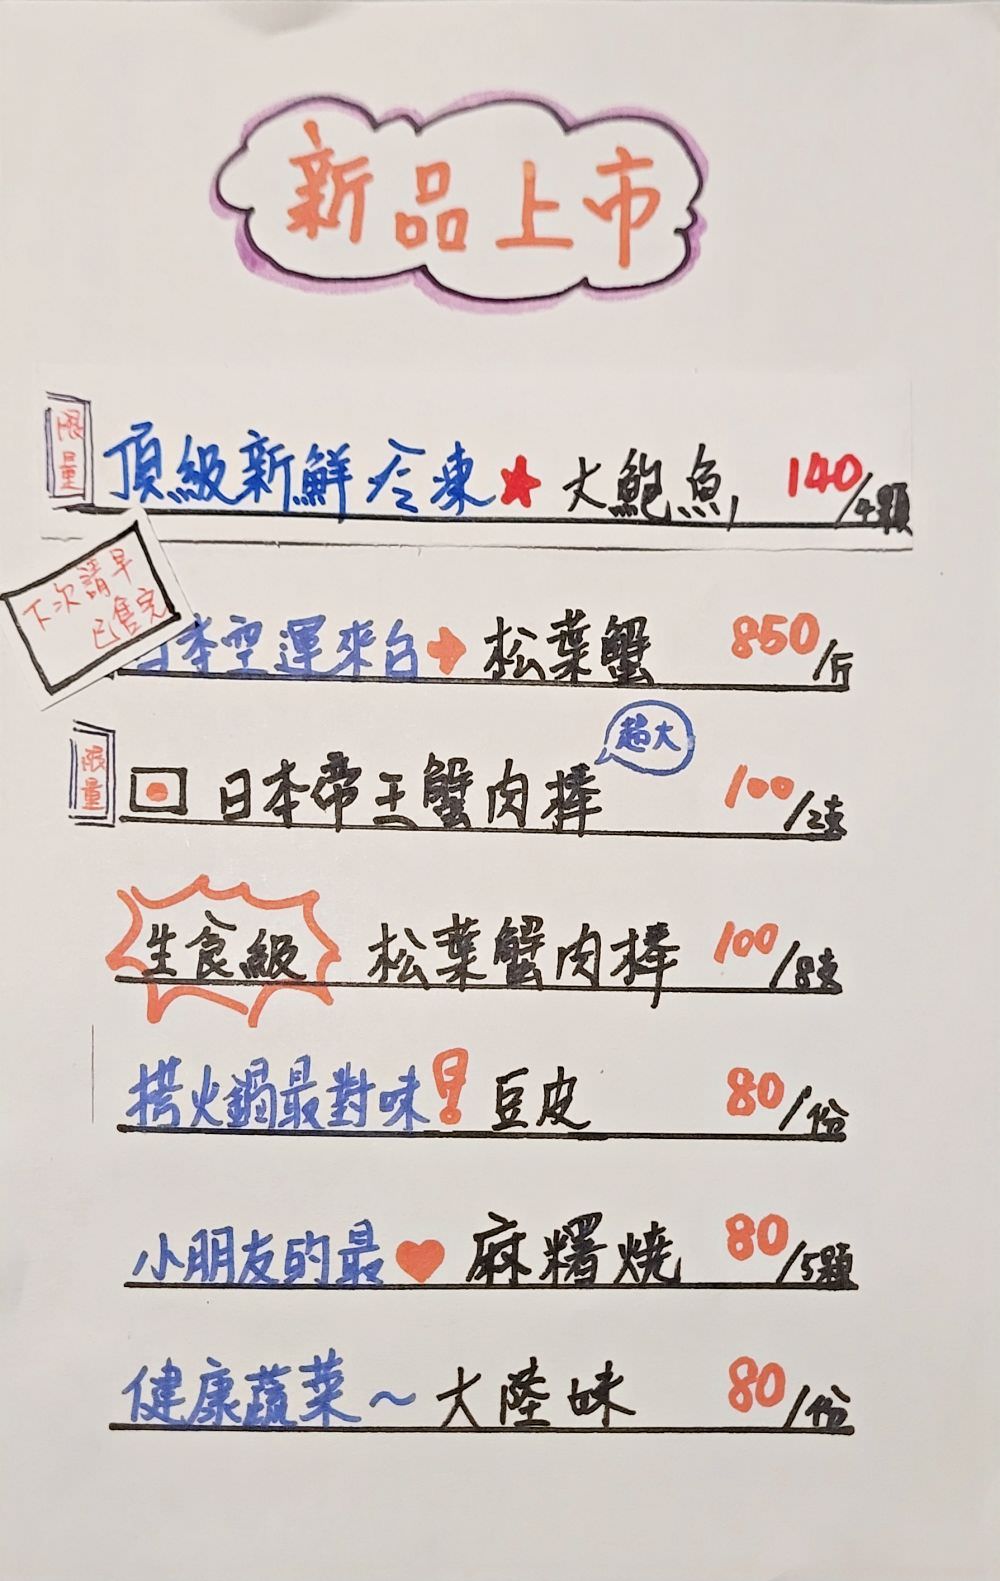 新品上市
限量 頂級新鮮冷凍★大鮑魚 140/4顆
下次請早
已售完
日本空運來台→松葉蟹 850/斤
超大
限量 日本帝王蟹肉棒 100/2支
生食級 松葉蟹肉棒 100/8支
搭火鍋最對味!豆皮 80/份
小朋友的最♥麻糬燒 80/5顆
健康蔬菜~大陸妹 80/份